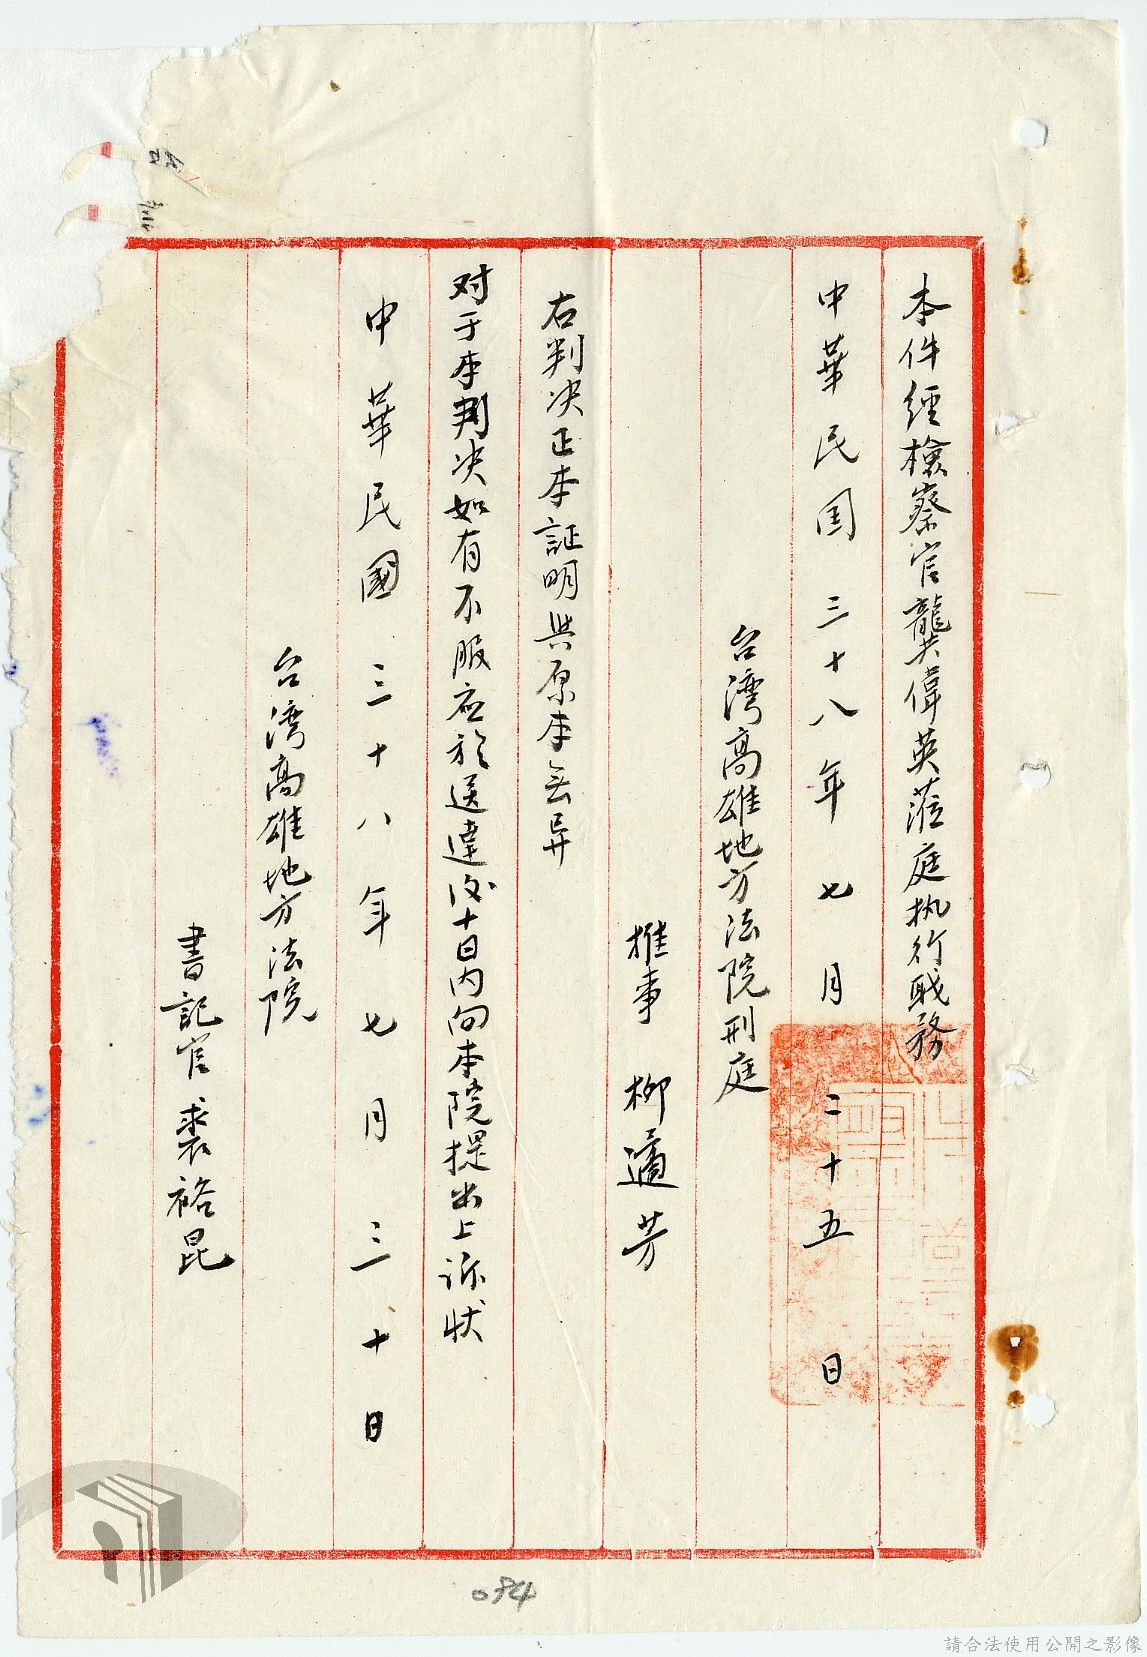 本件經檢察官龔偉英蒞庭执行职務
中華民囯三十八年七月二十五日
台湾高雄地方法院刑庭
推事 柳適芳
右判决正本証明與原本無异
对于本判决如有不服应於送達后十日内向本院提出上訴状
中華民國三十八年七月三十日
台湾高雄地方法院
書記官 裘裕昆
084
請合法使用公開之影像